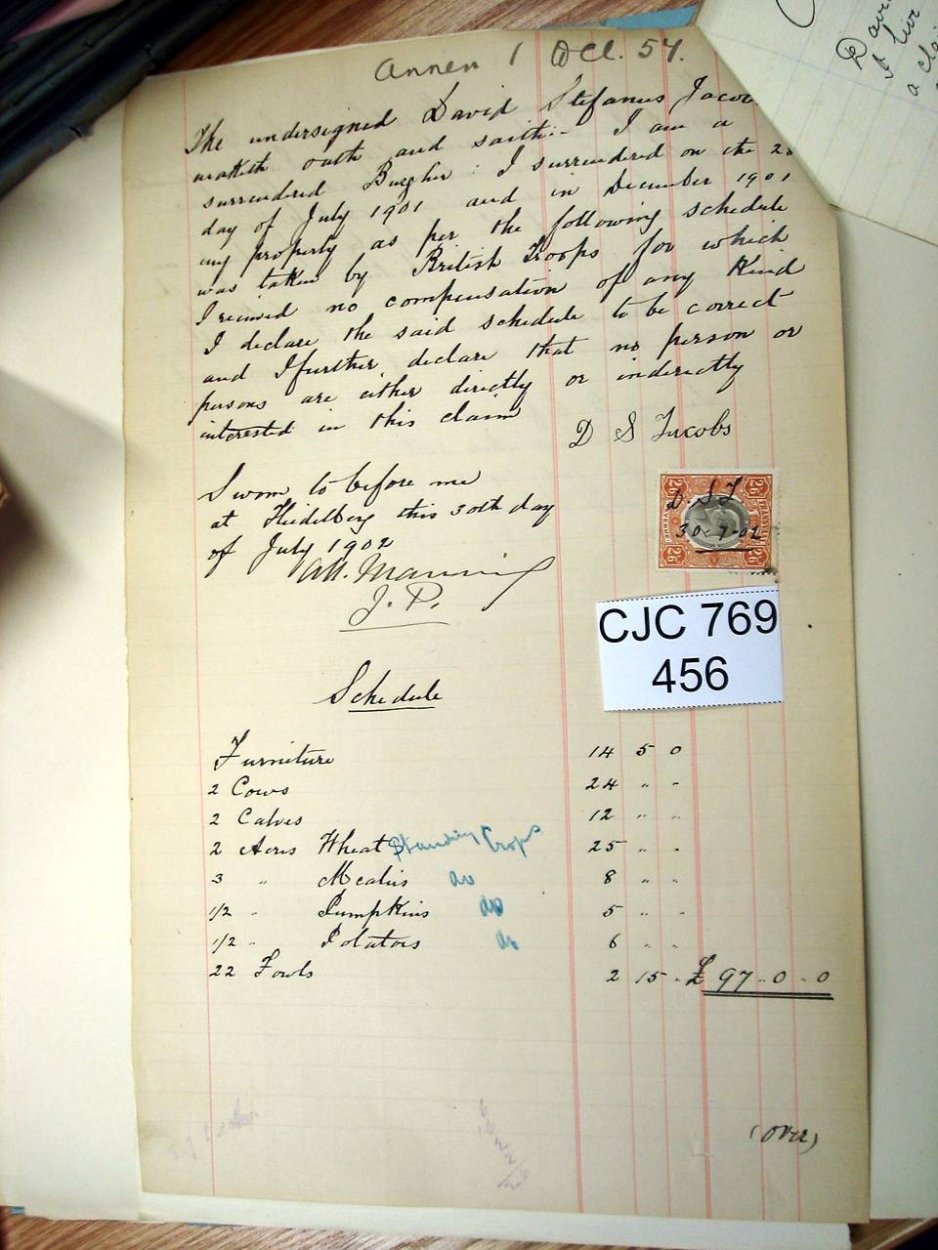 Annex 1 Dcl. 54.
The undersigned David Stefanus Jacobs
maketh oath and saith:- I am a
surrendered Burgher: I surrendered on the 28
day of July 1901 and in December 1901
my property as per the following schedule
was taken by British Troops for which
I received no compensation of any Kind
I declare the said schedule to be correct
and I further declare that no person or
persons are either directly or indirectly
interested in this claim
D S Jacobs
Sworn to before me
at Heidelberg this 30th day
of July 1902
Manning
J. P.
TRANSVAAL
REVENUE
2/6 2/6
D. S J
30-7-02
2/6 2/6
CJC 769
456
Schedule
Furniture 14 5 0
2 Cows 24 " -
2 Calves 12 " "
2 Acres Wheat Standing Crops 25 " "
3 " Mealies do 8 " "
1/2 " Pumpkins do 5 " "
1/2 " Potatoes do 6 " "
22 Fowls 2 15 - £ 97-0-0
(over)
Davi
I liv
a clai